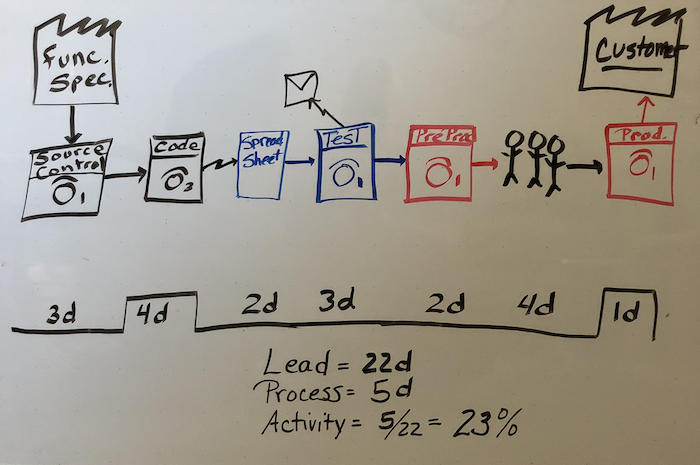 Func.
Spec.
Customer
Source
Control
1
Code
2
Spread
Sheet
Test
1
PreProd
1
Prod.
1
3d
4d
2d
3d
2d
4d
1d
Lead = 22d
Process = 5d
Activity = 5/22 = 23%